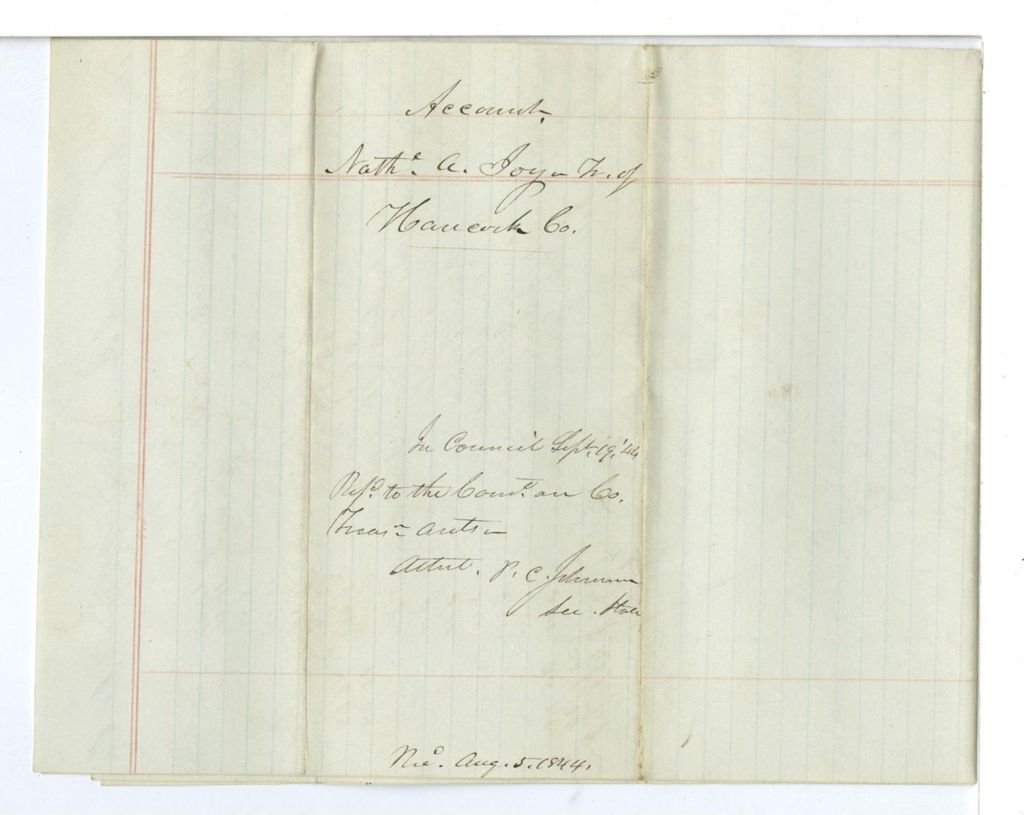 Account,
Nathl. A. Joy - Tr. of
Hancock Co.
In Council Sept. 19, '44
Refd. to the Comee. on Co.
Treasr. accts -
Attest. P. C. Johnson
Sec. State
Recd. Aug. 5. 1844.